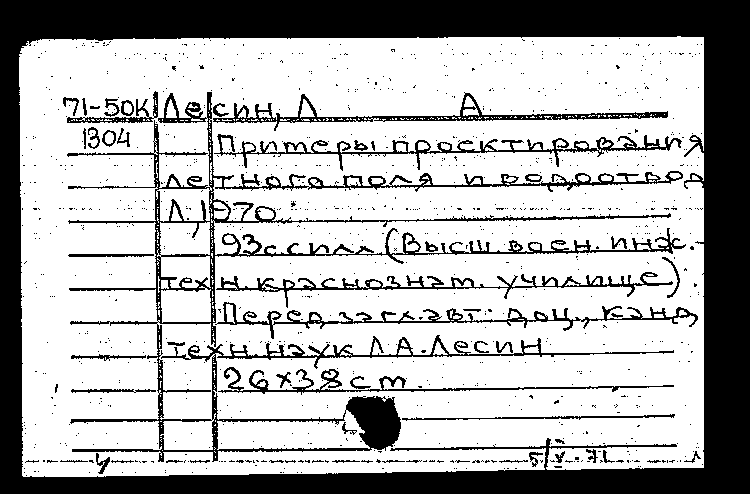 71-50К Лесин, Л А
1304 Примеры проектирования
летного поля и водоотвод
Л, 1970
93 с. с илл (Высш. воен. инж.-
техн. краснознам. училище)
Перед загл. авт: доц., канд,
техн. наук Л. А. Лесин.
26x38 cm.
5/V-71